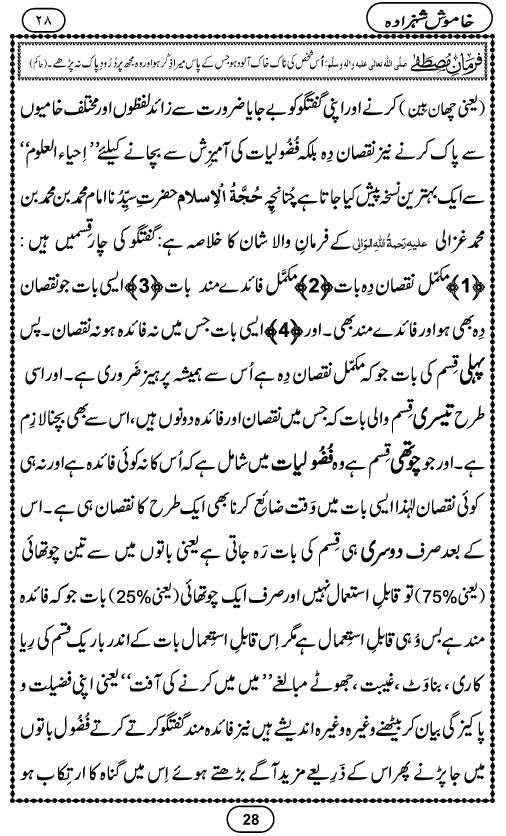 خاموش شہزادہ
۲۸
فرمانِ مصطفٰے صَلَّی اللہ تعالٰی علیہ واٰلہٖ وسلَّم: اُس شخص کی ناک خاک آلود ہو جس کے پاس میرا ذکر ہو اور وہ مجھ پر دُرُودِ پاک نہ پڑھے۔ (حاکم)
(یعنی چھان بین) کرنے اور اپنی گفتگو کو بے جا یا ضرورت سے زائد لفظوں اور مختلف خامیوں
سے پاک کرنے نیز نقصان دِہ بلکہ فُضُولیات کی آمیزش سے بچانے کیلئے ’’اِحیاءُ العلوم‘‘
سے ایک بہترین نسخہ پیش کیا جاتا ہے چُنانچِہ حُجَّۃُ الْاِسلام حضرتِ سیِّدُنا امام محمد بن محمد بن
محمد غزالی علیہ رَحمۃُ اللہِ الوالی کے فرمانِ والا شان کا خلاصہ ہے: گفتگو کی چار قِسمیں ہیں :
﴿1﴾ مکمَّل نقصان دِہ بات ﴿2﴾ مکمَّل فائدے مند بات ﴿3﴾ ایسی بات جو نقصان
دِہ بھی ہو اور فائدے مند بھی۔ اور ﴿4﴾ ایسی بات جس میں نہ فائدہ ہو نہ نقصان۔ پس
پہلی قِسم کی بات جو کہ مکمَّل نقصان دِہ ہے اُس سے ہمیشہ پرہیز ضَروری ہے۔ اور اسی
طرح تیسری قِسم والی بات کہ جس میں نقصان اور فائدہ دونوں ہیں، اس سے بھی بچنا لازِم
ہے۔ اور جو چوتھی قسم ہے وہ فُضُولیات میں شامل ہے کہ اُس کا نہ کوئی فائدہ ہے اور نہ ہی
کوئی نقصان لہٰذا ایسی بات میں وَقت ضائِع کرنا بھی ایک طرح کا نقصان ہی ہے۔ اس
کے بعد صرف دوسری ہی قِسم کی بات رَہ جاتی ہے یعنی باتوں میں سے تین چوتھائی
(یعنی %75) تو قابلِ استعمال نہیں اور صرف ایک چوتھائی (یعنی %25) بات جو کہ فائدہ
مند ہے بس وُہی قابلِ استعمال ہے مگر اِس قابلِ استِعمال بات کے اندر باریک قسم کی رِیا
کاری ، بناوَٹ ، غیبت ، جھوٹے مبالغے ’’میں میں کرنے کی آفت‘‘ یعنی اپنی فضیلت و
پاکیزگی بیان کر بیٹھنے وغیرہ وغیرہ اندیشے ہیں نیز فائدہ مند گفتگو کرتے کرتے فُضُول باتوں
میں جا پڑنے پھر اس کے ذَرِیعے مزید آگے بڑھتے ہوئے اِس میں گناہ کا ارتِکاب ہو
28